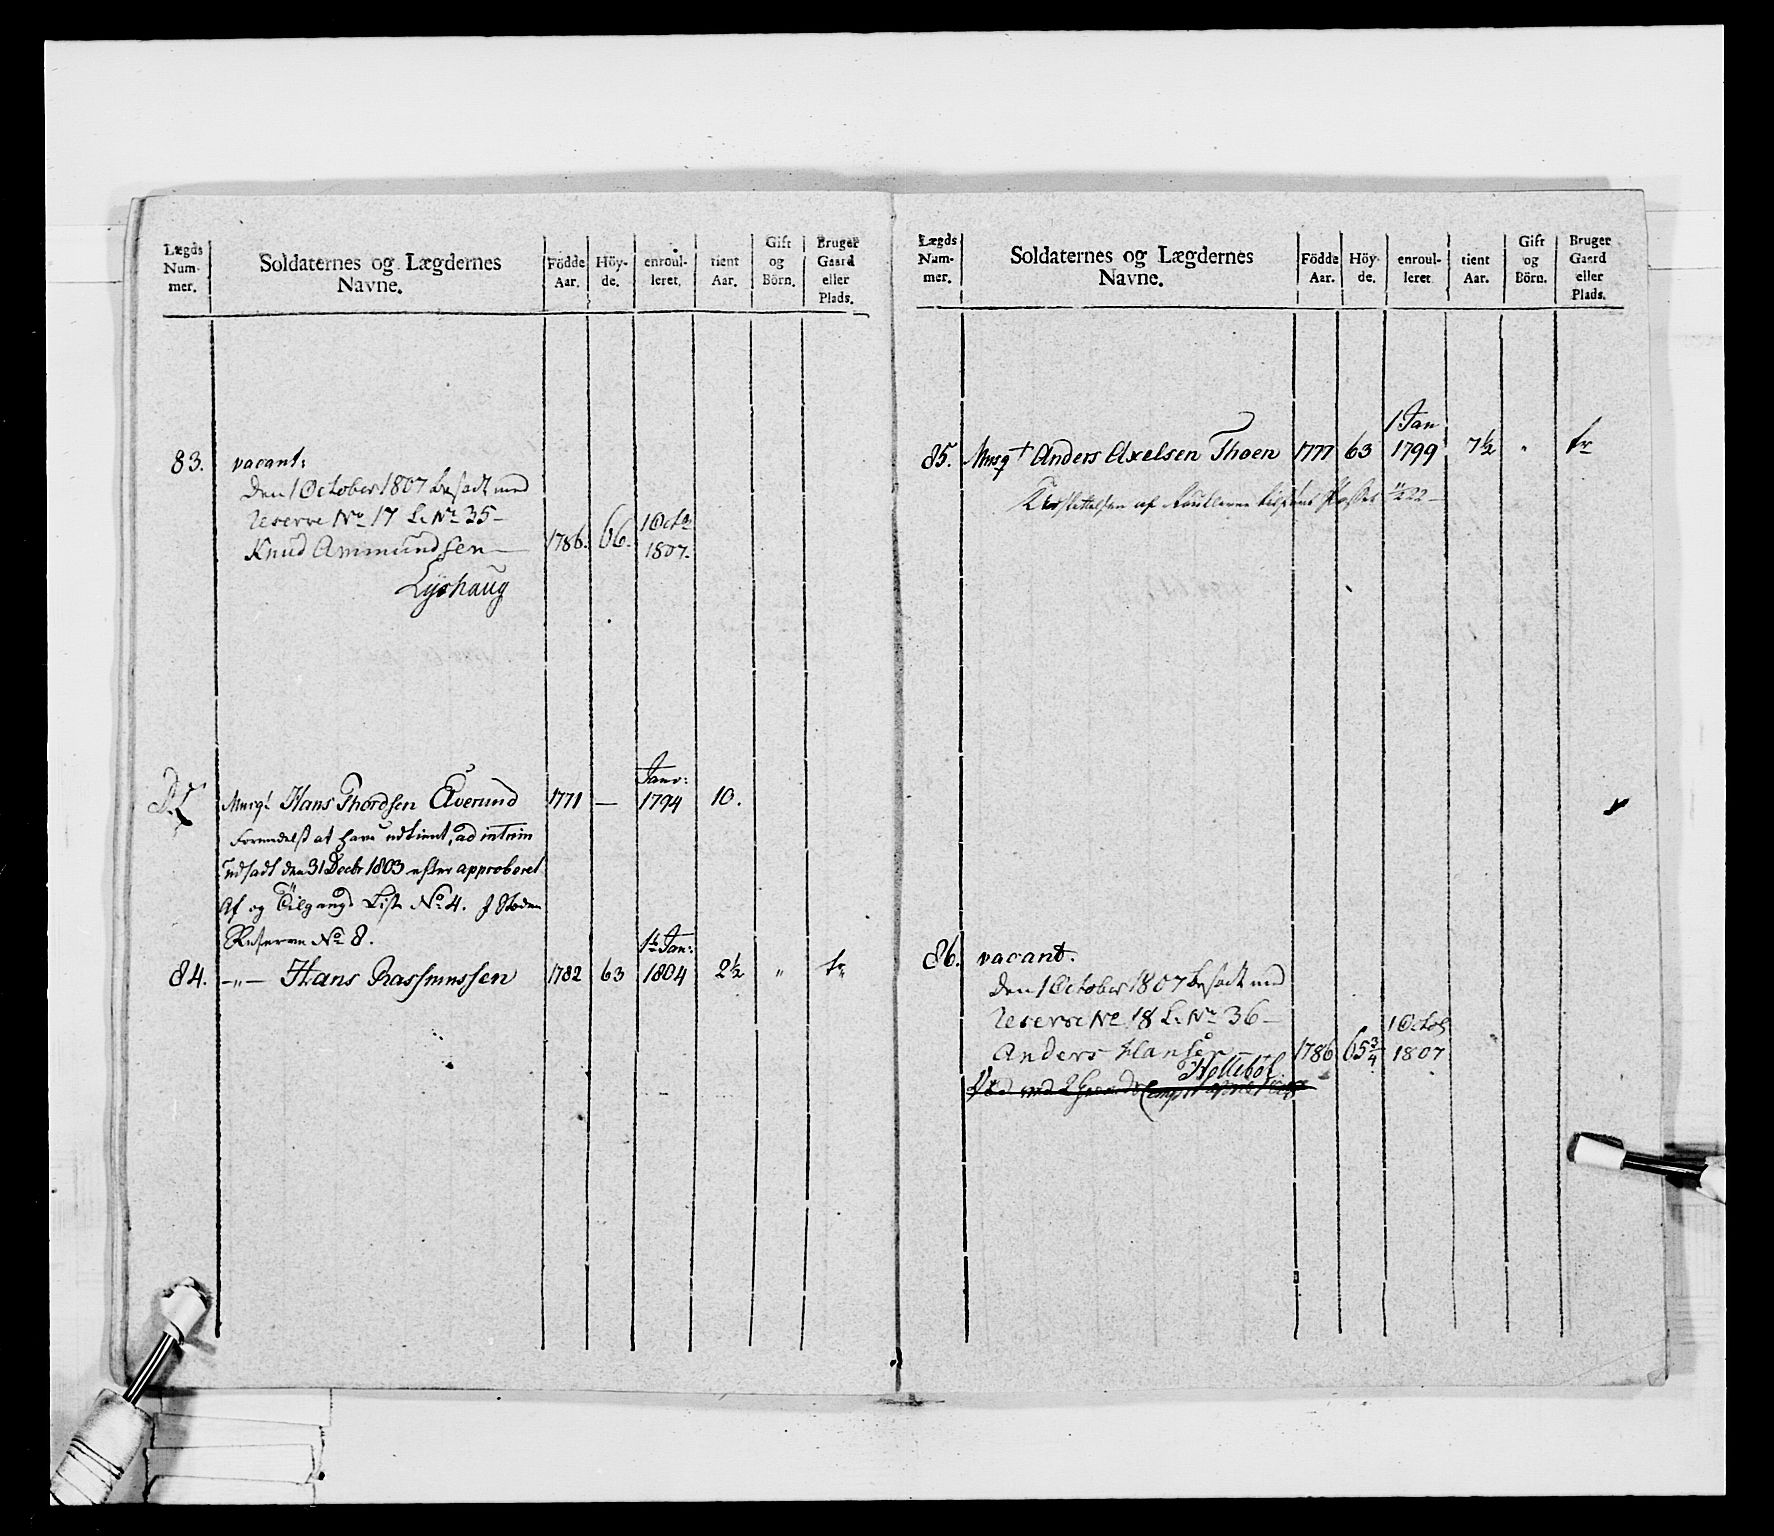 Lægds Num- mer.
Soldaternes og Lægdernes Navne.
Födde Aar.
Höy- de.
enroul- leret.
tient Aar.
Gift og Börn.
Bruger Gaard eller Plads.
83. vacant:
Den 1 October 1807 besadt med
reserve No 17 L. No 35 –
Knud Ammundsen – 1786. 66. 1 Octo 1807.
Lyshaug
Musqt Hans Thordsen Averund 1771 — Janv: 1794 10.
Formedelst at have udtient, ad intrim
udsadt den 31 Decbr 1803 efter approberet
Af og Tilgangs Liste No 4.
Reserve No 8.
84. –„– Hans Rasmussen 1782 63 1te Jan: 1804 2½ „ fr
Lægds Num- mer.
Soldaternes og Lægdernes Navne.
Födde Aar.
Höy- de.
enroul- leret
tient Aar.
Gift og Börn.
Bruger Gaard eller Plads.
85. Musqt Anders Axelsen Thoen 1777 63 1 Jan 1799 7½ „ fr
af Roullerne
86. vacant.
Den 1 October 1807 besadt med
reserve No 18 L. No 36 –
Anders Hansen 1786 65¾ 1 Octob 1807
Holleböl